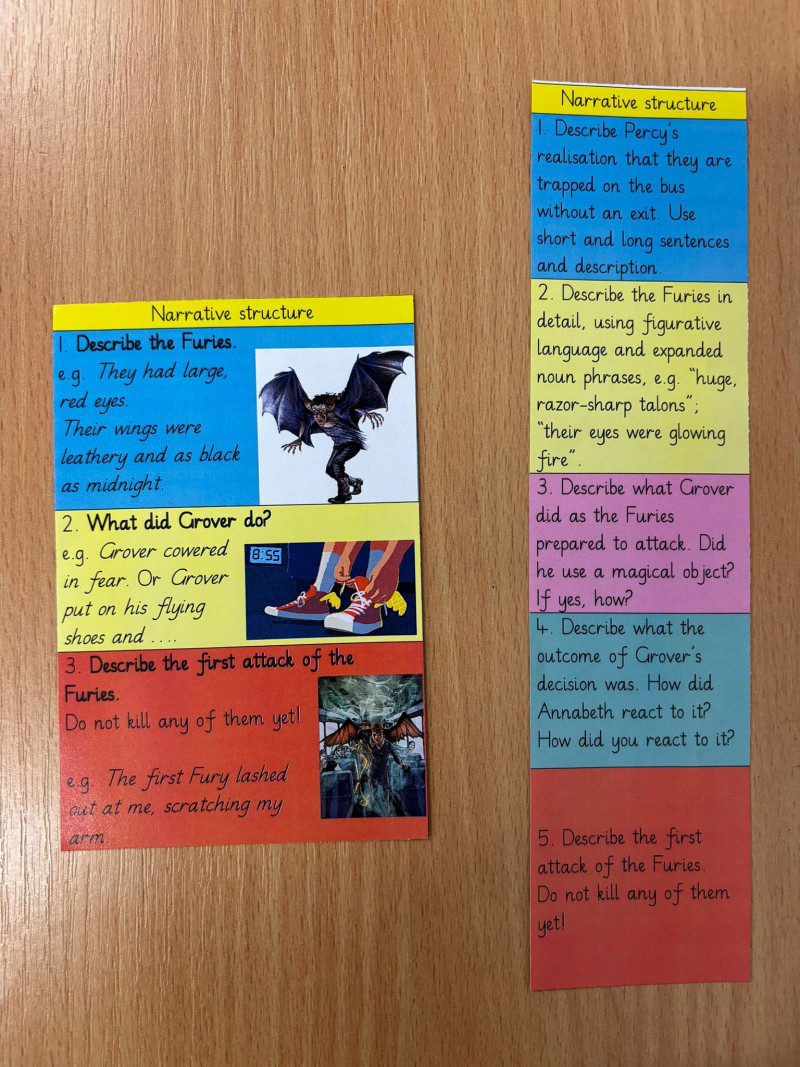 Narrative structure
1. Describe the Furies.
e.g. They had large,
red eyes.
Their wings were
leathery and as black
as midnight.
2. What did Grover do?
e.g. Grover cowered
in fear. Or Grover
put on his flying
shoes and ....
8:55
3. Describe the first attack of the
Furies.
Do not kill any of them yet!
e.g. The first Fury lashed
out at me, scratching my
arm.
Narrative structure
1. Describe Percy's
realisation that they are
trapped on the bus
without an exit. Use
short and long sentences
and description.
2. Describe the Furies in
detail, using figurative
language and expanded
noun phrases, e.g. "huge,
razor-sharp talons";
"their eyes were glowing
fire".
3. Describe what Grover
did as the Furies
prepared to attack. Did
he use a magical object?
If yes, how?
4. Describe what the
outcome of Grover's
decision was. How did
Annabeth react to it?
How did you react to it?
5. Describe the first
attack of the Furies.
Do not kill any of them
yet!